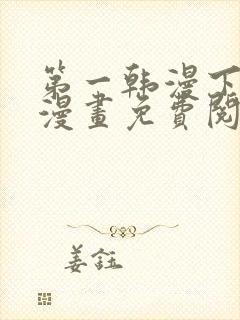 第一韩漫下
漫畫免費閱
姜鈺